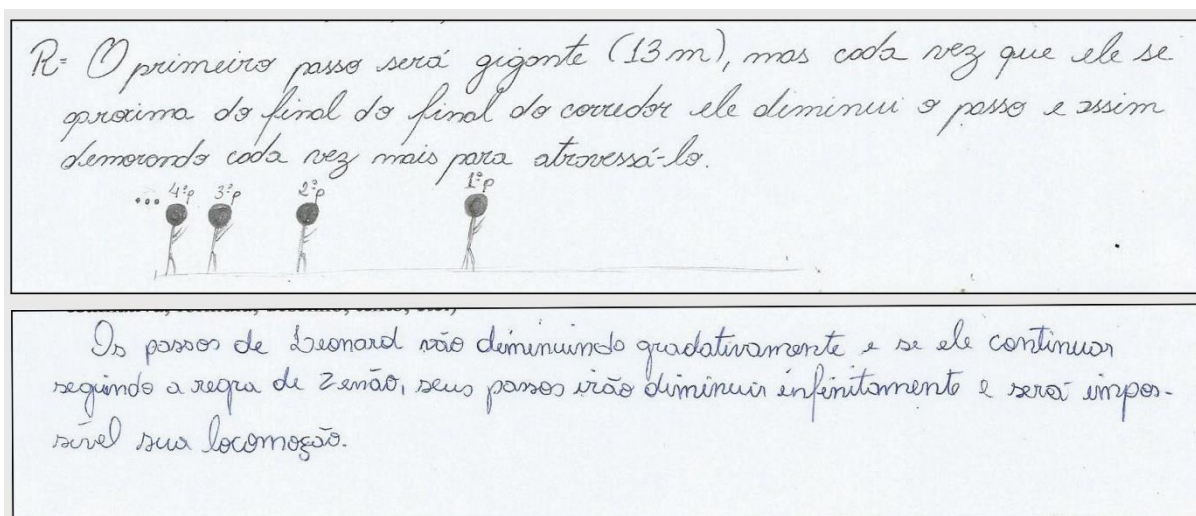 R= O primeiro passo será gigante (13 m), mas cada vez que ele se
aproxima do final do final do corredor ele diminui o passo e assim
demorando cada vez mais para atravessá-lo.
... 4ºp 3ºp 2ºp 1ºp
Os passos de Leonard vão diminuindo gradativamente e se ele continuar
seguindo a regra de Zenão, seus passos irão diminuir infinitamente e será impos-
sível sua locomoção.